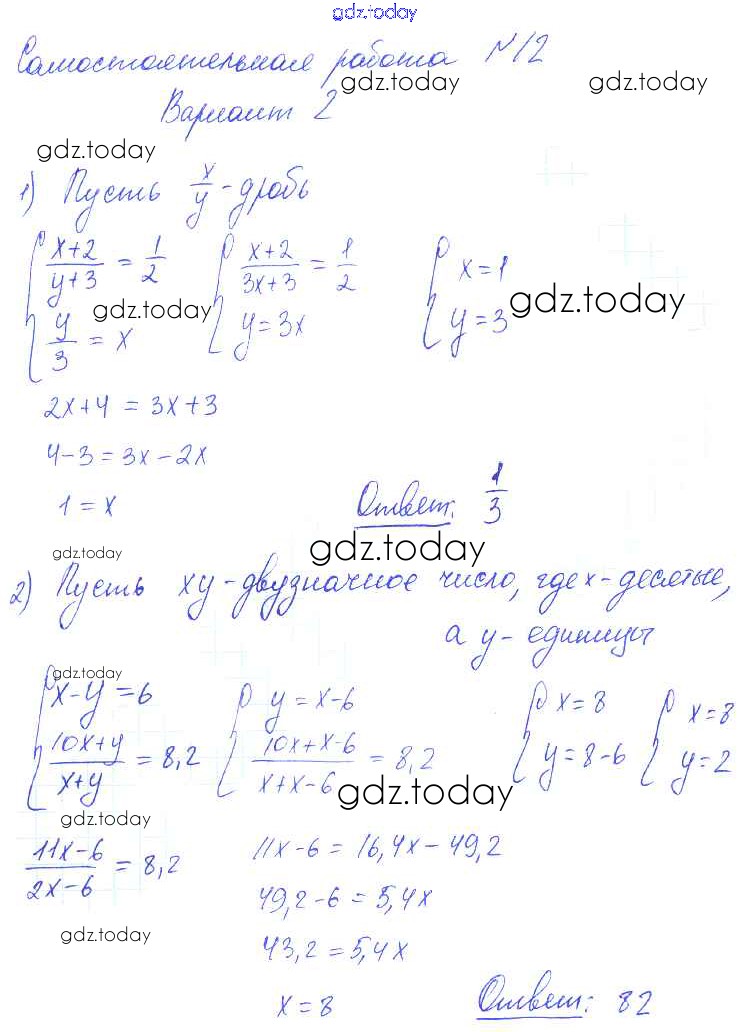 gdz.today
Самостоятельная работа №12
gdz.today gdz.today
Вариант 2
gdz.today
1) Пусть x/y - дробь
{ (x+2)/(y+3) = 1/2 { (x+2)/(3x+3) = 1/2 { x=1
gdz.today gdz.today
y/3 = x y=3x y=3
2x+4 = 3x+3
4-3=3x-2x
1=x Ответ: 1/3
gdz.today gdz.today
2) Пусть xy-двузначное число, где x-десятые,
а y-единицы
gdz.today
{ x-y=6 { y=x-6 { x=8 { x=8
(10x+y)/(x+y) = 8,2 (10x+x-6)/(x+x-6) = 8,2 y=8-6 y=2
gdz.today
gdz.today
(11x-6)/(2x-6) = 8,2 11x-6=16,4x-49,2
49,2-6=5,4x
gdz.today
43,2=5,4x
x=8 Ответ: 82